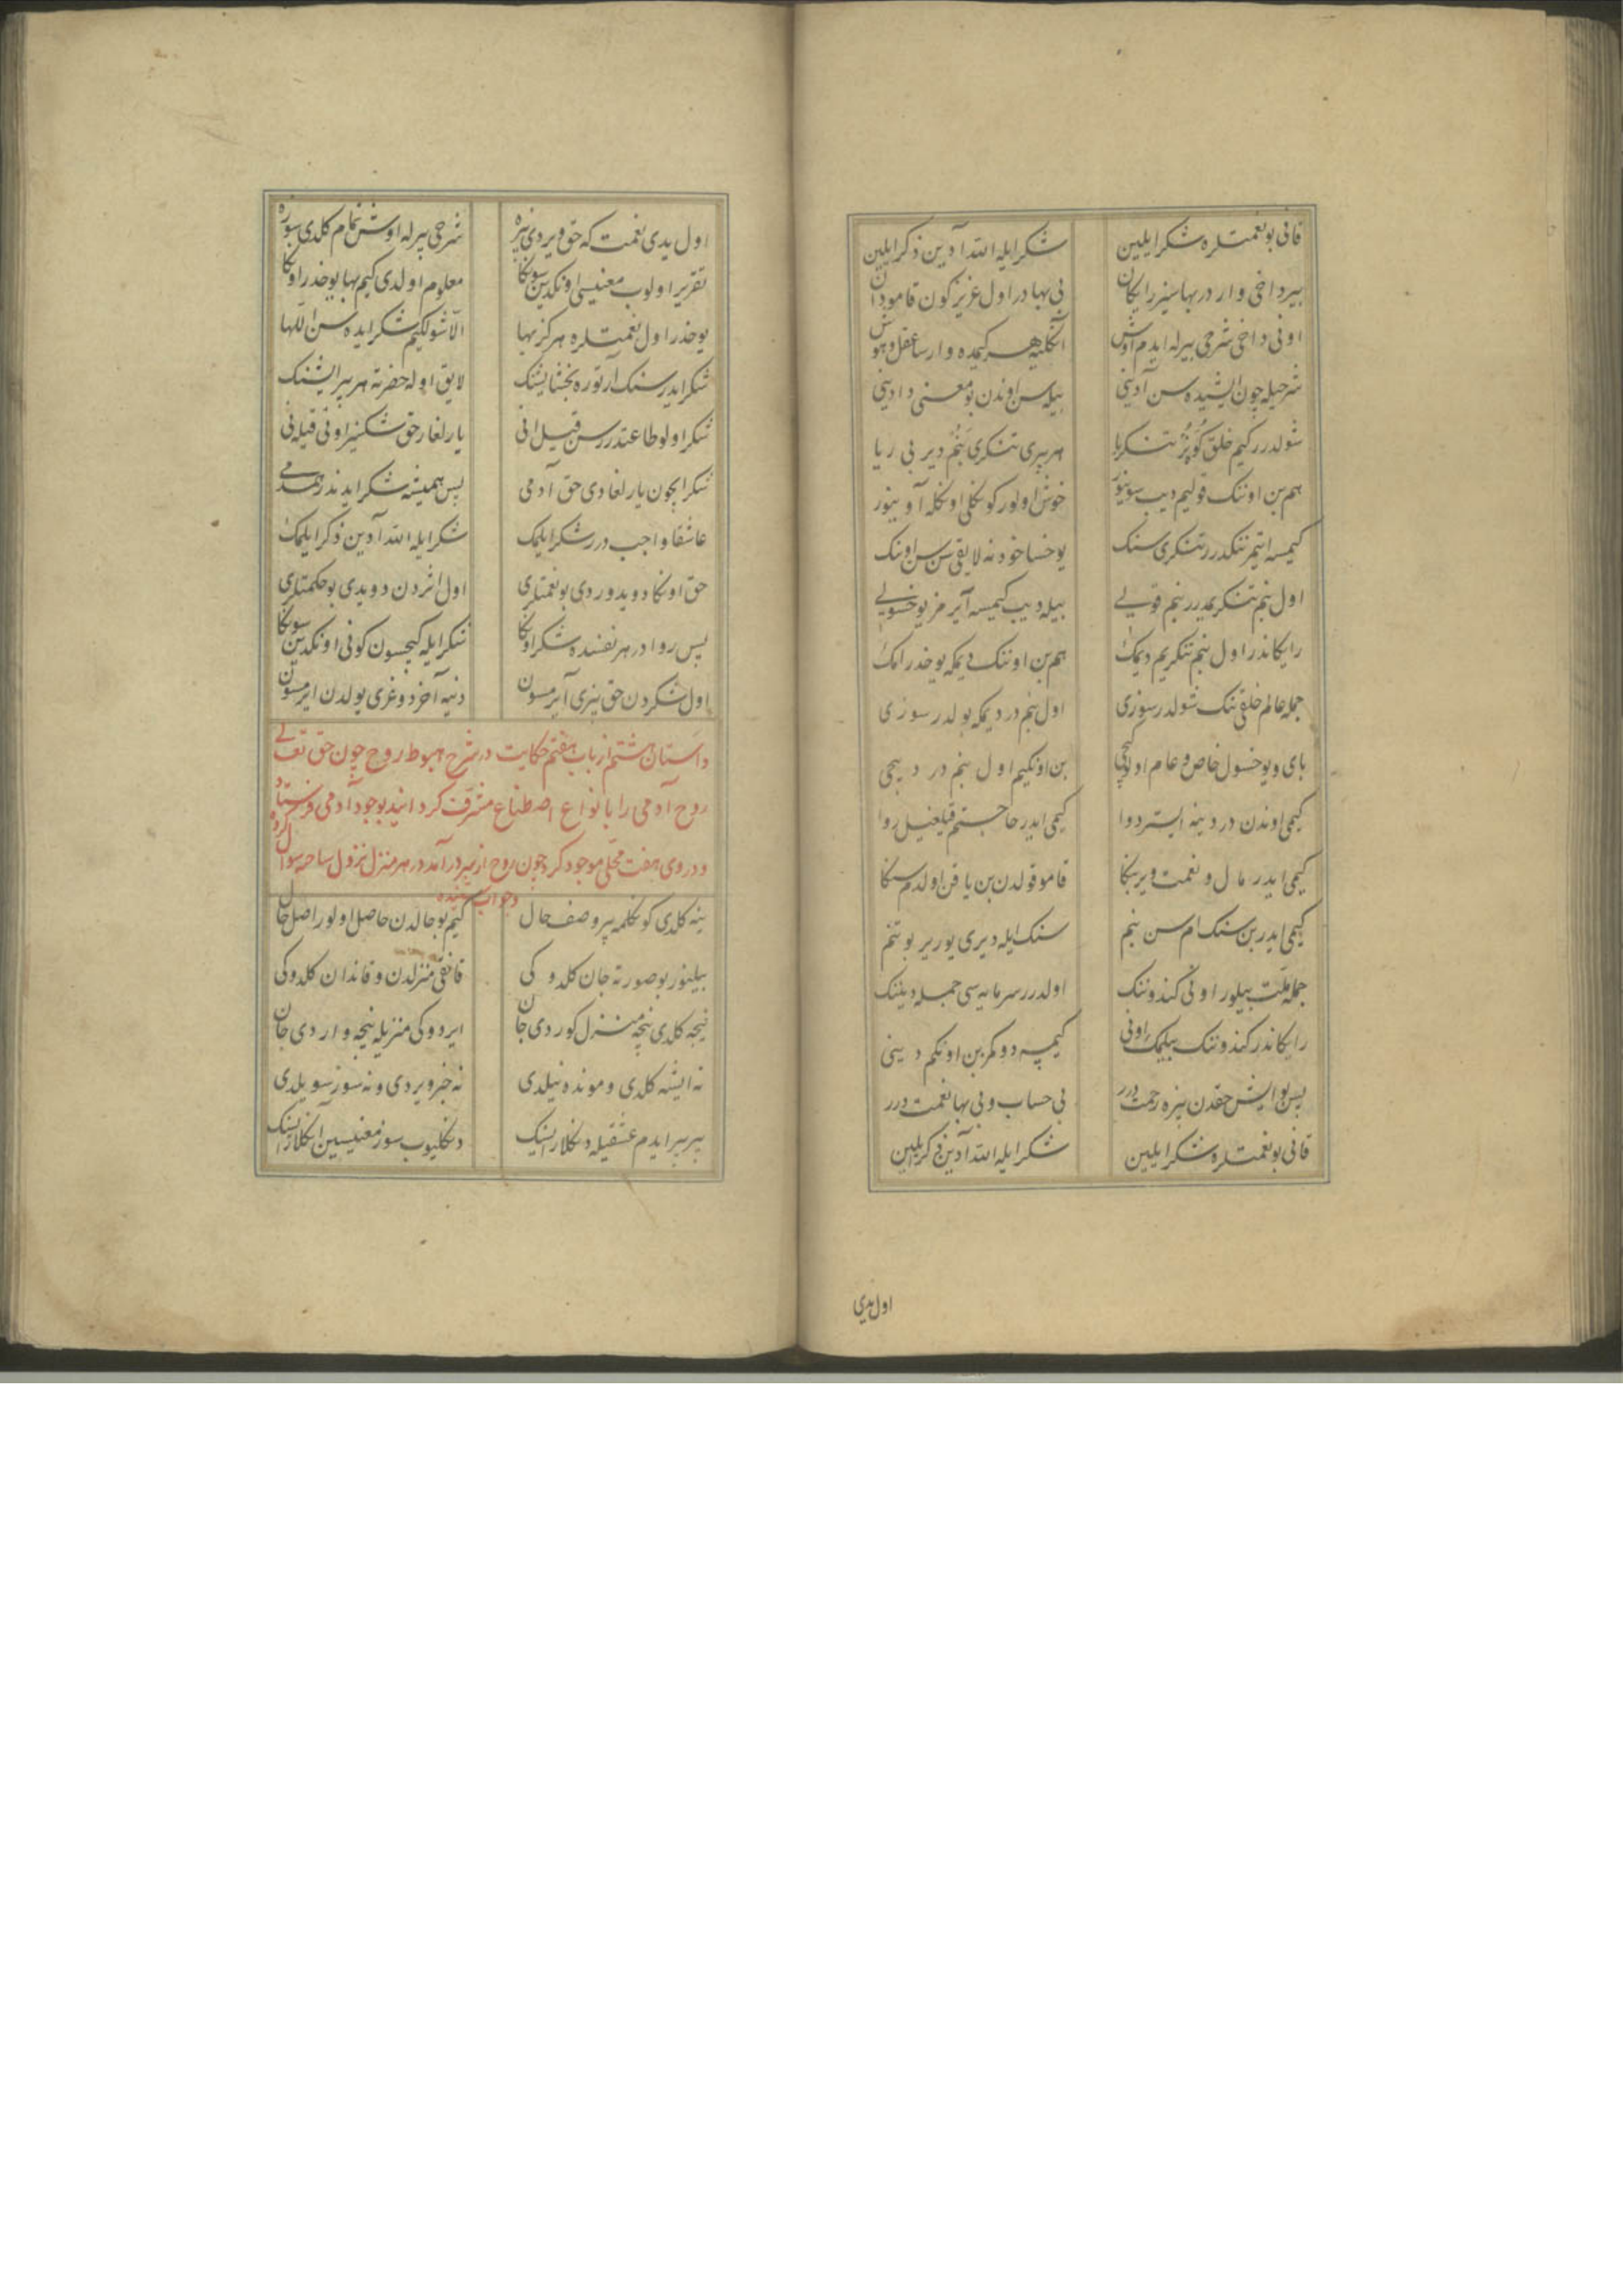 قانی بو نعمتلره شکر ایلیین شکر ایله الله آدین ذکر ایلیین
بیر داخی وار در بهاسیز رایکان بی بها در اول عزیز کون قامودان
اونی داخی شرحی بیرله ایدم اوش انکلیه هر کیمده وارسا عقل و هوش
شرحیله چون ایشیده سن آدینی بیله سن اوندن بو معنی دادینی
شولدرر کیم خلق کوپز تنکریا هر بیری تنکری بنم دیر بی ریا
هم بن اوننک قولیم دیب سوینور خوش اولور کونکلی اونکله آوینور
کیمسه ایتمز ننکدرر تنکری سنک یوخسا خود نه لایقی سن سن اوننک
اول بنم تنکریمدرر بنم قولی بیله دیب کیمسه آیرمز یوخسولی
رایکاندر اول بنم تنکریم دیمک هم بن اوننک دیمکه یوخدر امک
جمله عالم خلقی ننک شولدر سوزی اول بنم در دیمکه یولدر سوزی
بای و یوخسول خاص و عام اولو کیچی بن اونکیم اول بنم در دییجی
کیمی اوندن دردینه ایستر دوا کیمی ایدر حاجتم قیلغیل روا
کیمی ایدر مال و نعمت ویر بنکا قامو قولدن بن یاقن اولدم سنکا
کیمی ایدر بن سنک ام سن بنم سنک ایله دیری یوریر بو تنم
جمله ملت بیلور اونی کندوننک اولدرر سرمایه سی جمله دیننک
رایکاندر کندوننک بیلمک اونی کیمیه دومکز بن اونکم دینی
پس بو ایش حقدن بیزه رحمت درر بی حساب و بی بها نعمت درر
قانی بو نعمتلره شکر ایلیین شکر ایله الله آدین ذکر ایلیین
اول یدی
اول یدی نعمت که حق ویردی بیزه شرحی بیرله اوش تمام کلدی سوزه
تقریر اولوب معنیسی اونکدین سونکا معلوم اولدی کیم بها یوخدر اونکا
یوخدر اول نعمتلره هرکز بها الا شولکیم شکر ایده سن اللها
شکر ایدرسنک آرتوره بخشایشنک لایق اوله حضرته هر بیر ایشنک
شکر اولو طاعتدرر سن قیل انی یارلغار حق شکسیز اونی قیله نی
شکر ایچون یارلغادی حق آدمی پس همیشه شکر ایدندر همدمی
عاشقا واجب درر شکر ایلمک شکر ایله الله آدین ذکر ایلمک
حق اونکا دویدوردی بو نعمتلری اول اثردن دویدی بو حکمتلری
پس روا در هر نفسده شکر اونکا شکر ایله کیچسون کونی اونکدین سونکا
اول شکردن حق بیزی آیرمسون دنیه آخر دوغری یولدن ایرمسون
داستان هشتم از باب هفتم حکایت در شرح هبوط روح چون حق تعالی
روح آدمی را بانواع اصطناع مشرف کردانید بوجود آدمی فرستاد
و در وی هفت محلی موجود کرد چون روح از سیر در آمد در هر منزل نزول ساخته سوال کرده
و جواب شنیده
ینه کلدی کونکلمه بیر وصف حال کیم بو حالدن حاصل اولور اصل حال
بیلینور بو صورته جان کلدوکی قانقی منزلدن و قاندان کلدوکی
نیجه کلدی نیجه منزل کوردی جان ایردوکی منزیله نیجه واردی جان
نه ایشه کلدی و مونده نیلدی نه خبر ویردی و نه سوز سویلدی
بیر بیر ایدم عشقیله دنکلارسنک دنکلیوب سوز معنیسین انکلارسنک